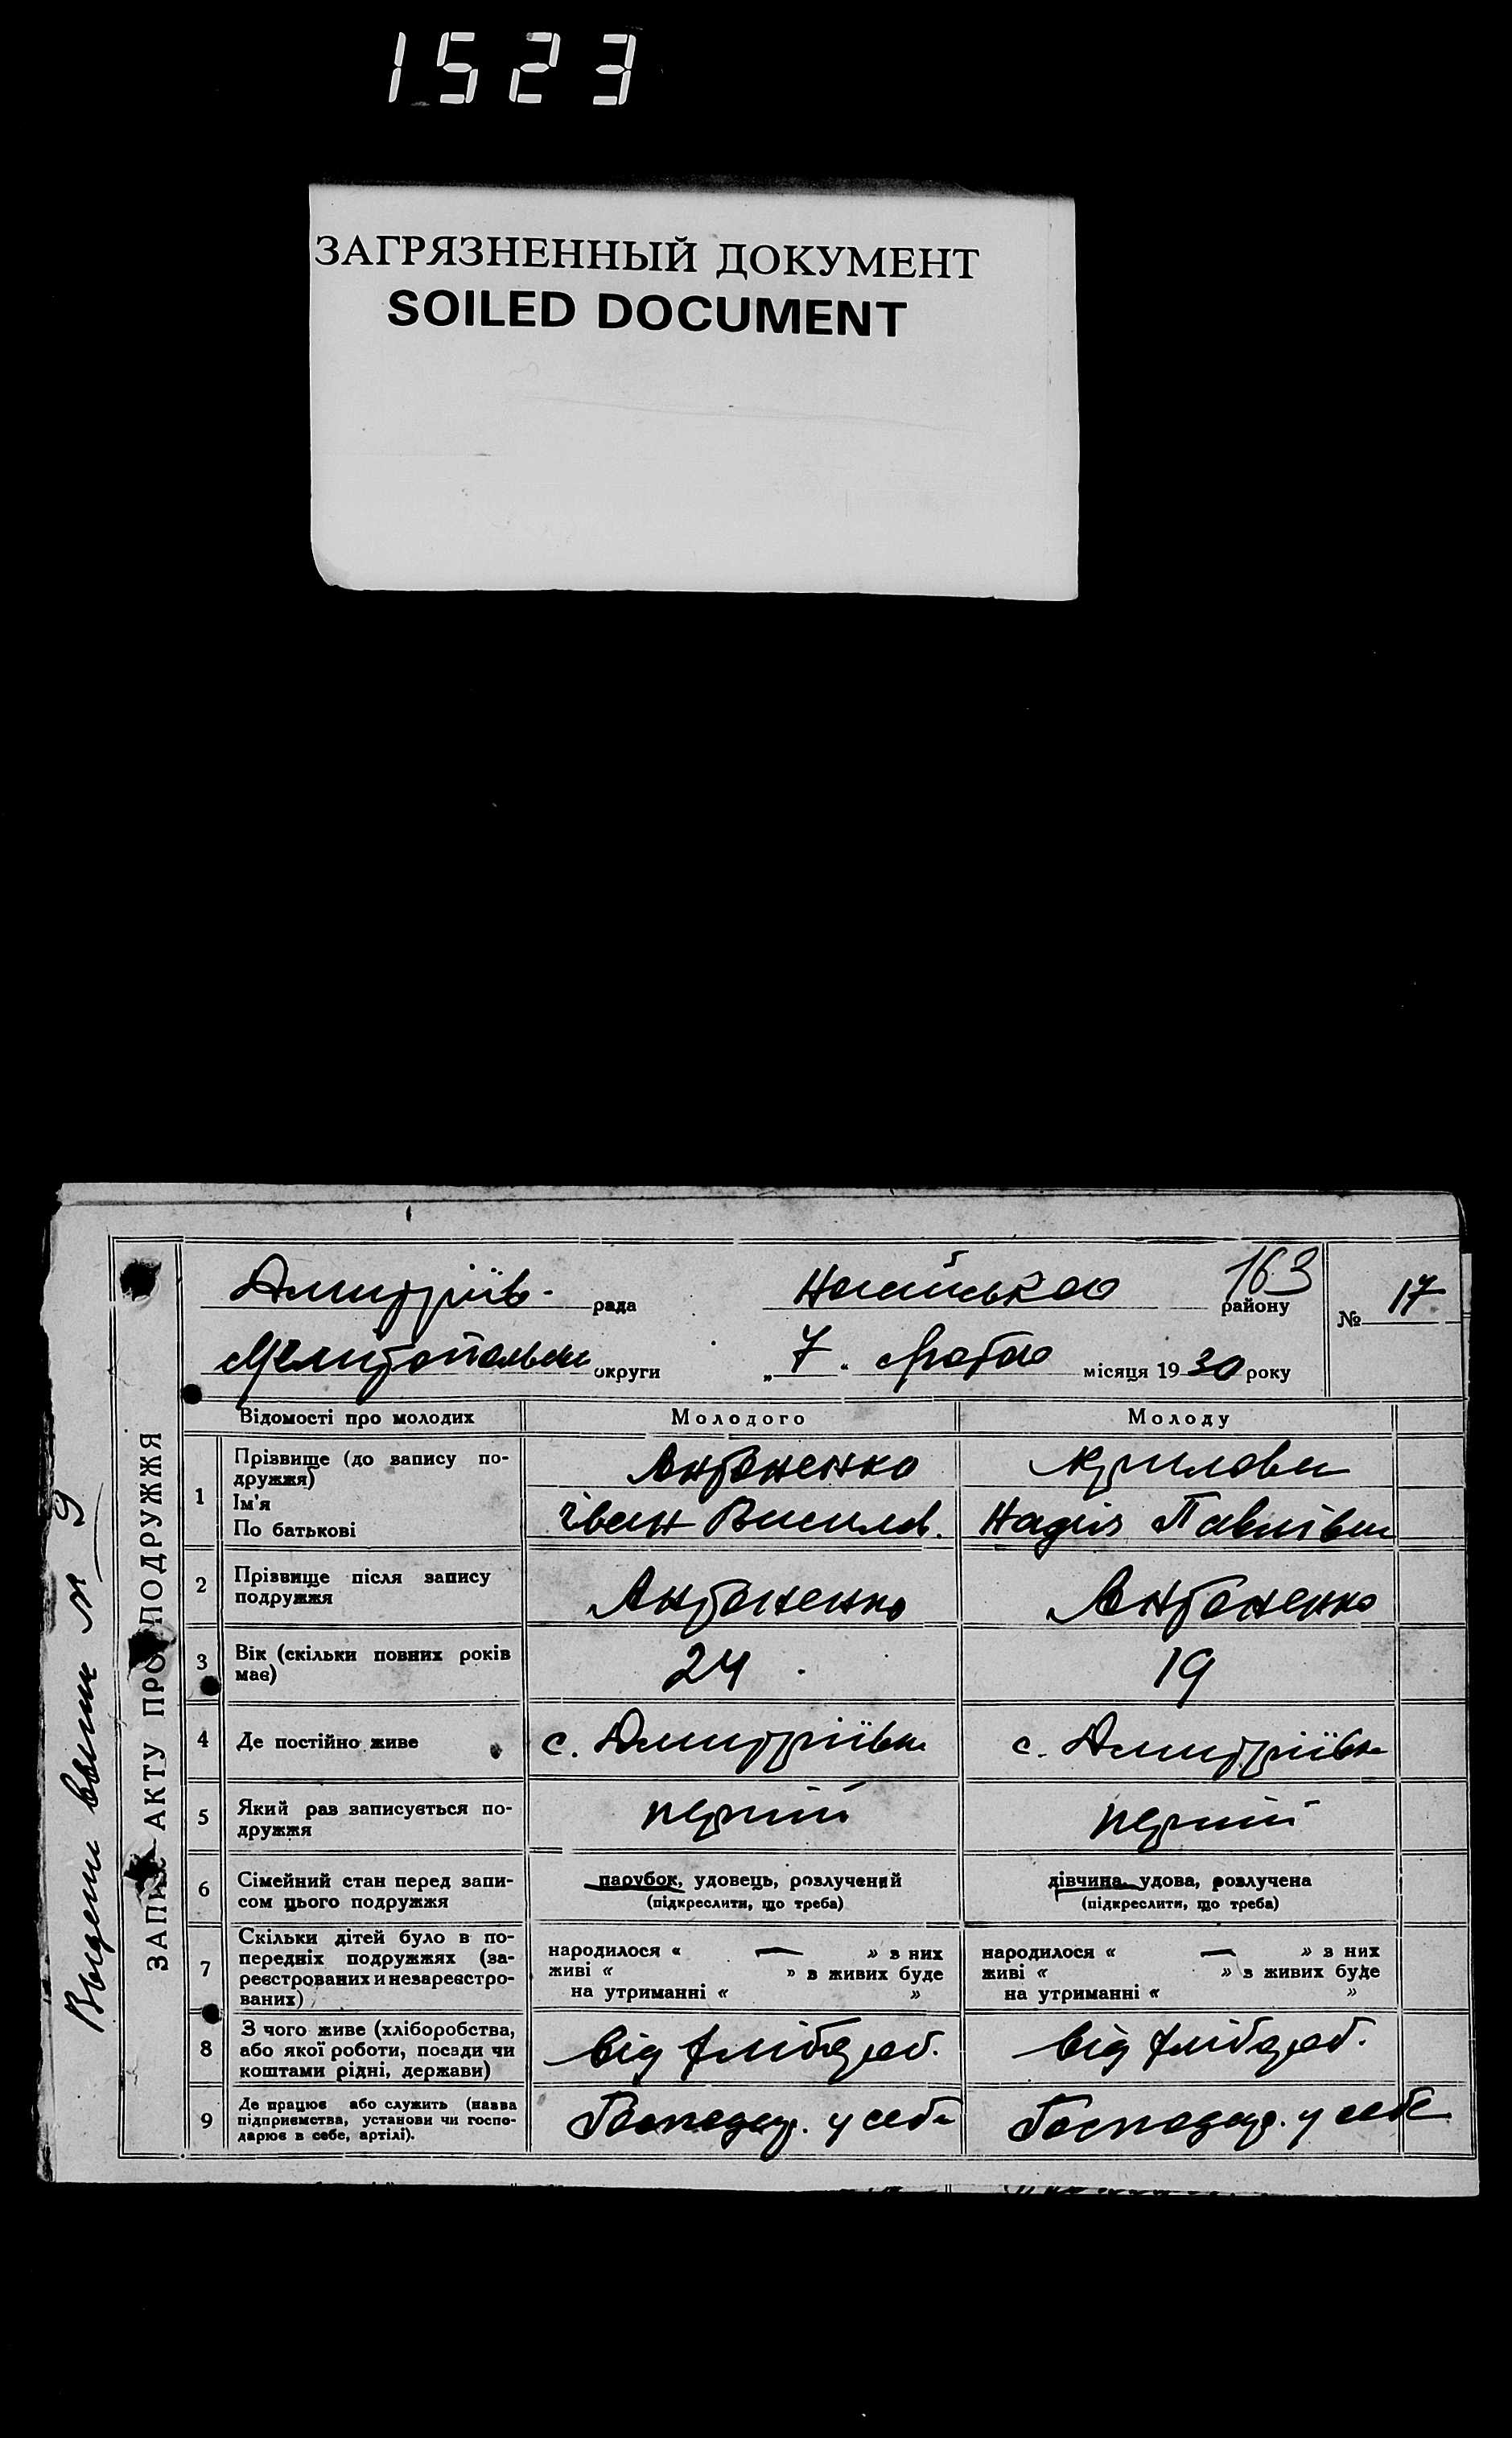 1523
ЗАГРЯЗНЕННЫЙ ДОКУМЕНТ
SOILED DOCUMENT
163
Дмитріїв. рада Ногайського району № 17
Мелітопольськ округи „ 7 “ місяця 1930 року
ЗАПИС АКТУ ПРО ПОДРУЖЖЯ
№ 9
Відомості про молодих Молодого Молоду
1 Прізвище (до запису по-
дружжя) Антоненко Крилова
Ім'я
По батькові Іван Василов. Надія Павлівна
2 Прізвище після запису
подружжя Антоненко Антоненко
3 Вік (скільки повних років
має) 24 19
4 Де постійно живе с. Дмитріївка с. Дмитріївка
5 Який раз записується по-
дружжя перший перший
6 Сімейний стан перед запи-
сом цього подружжя парубок, удовець, розлучений дівчина, удова, розлучена
(підкреслити, що треба) (підкреслити, що треба)
7 Скільки дітей було в по-
передніх подружжях (за-
реєстрованих и незареєстро-
ваних)
народилося « — » з них народилося « — » з них
живі « » з живих буде живі « » з живих буде
на утриманні « » на утриманні « »
8 З чого живе (хліборобства,
або якої роботи, посади чи
коштами рідні, держави) від хлібороб. від хлібороб.
9 Де працює або служить (назва
підприємства, установи чи госпо-
дарює в себе, артілі). Господар. у себе Господар. у себе